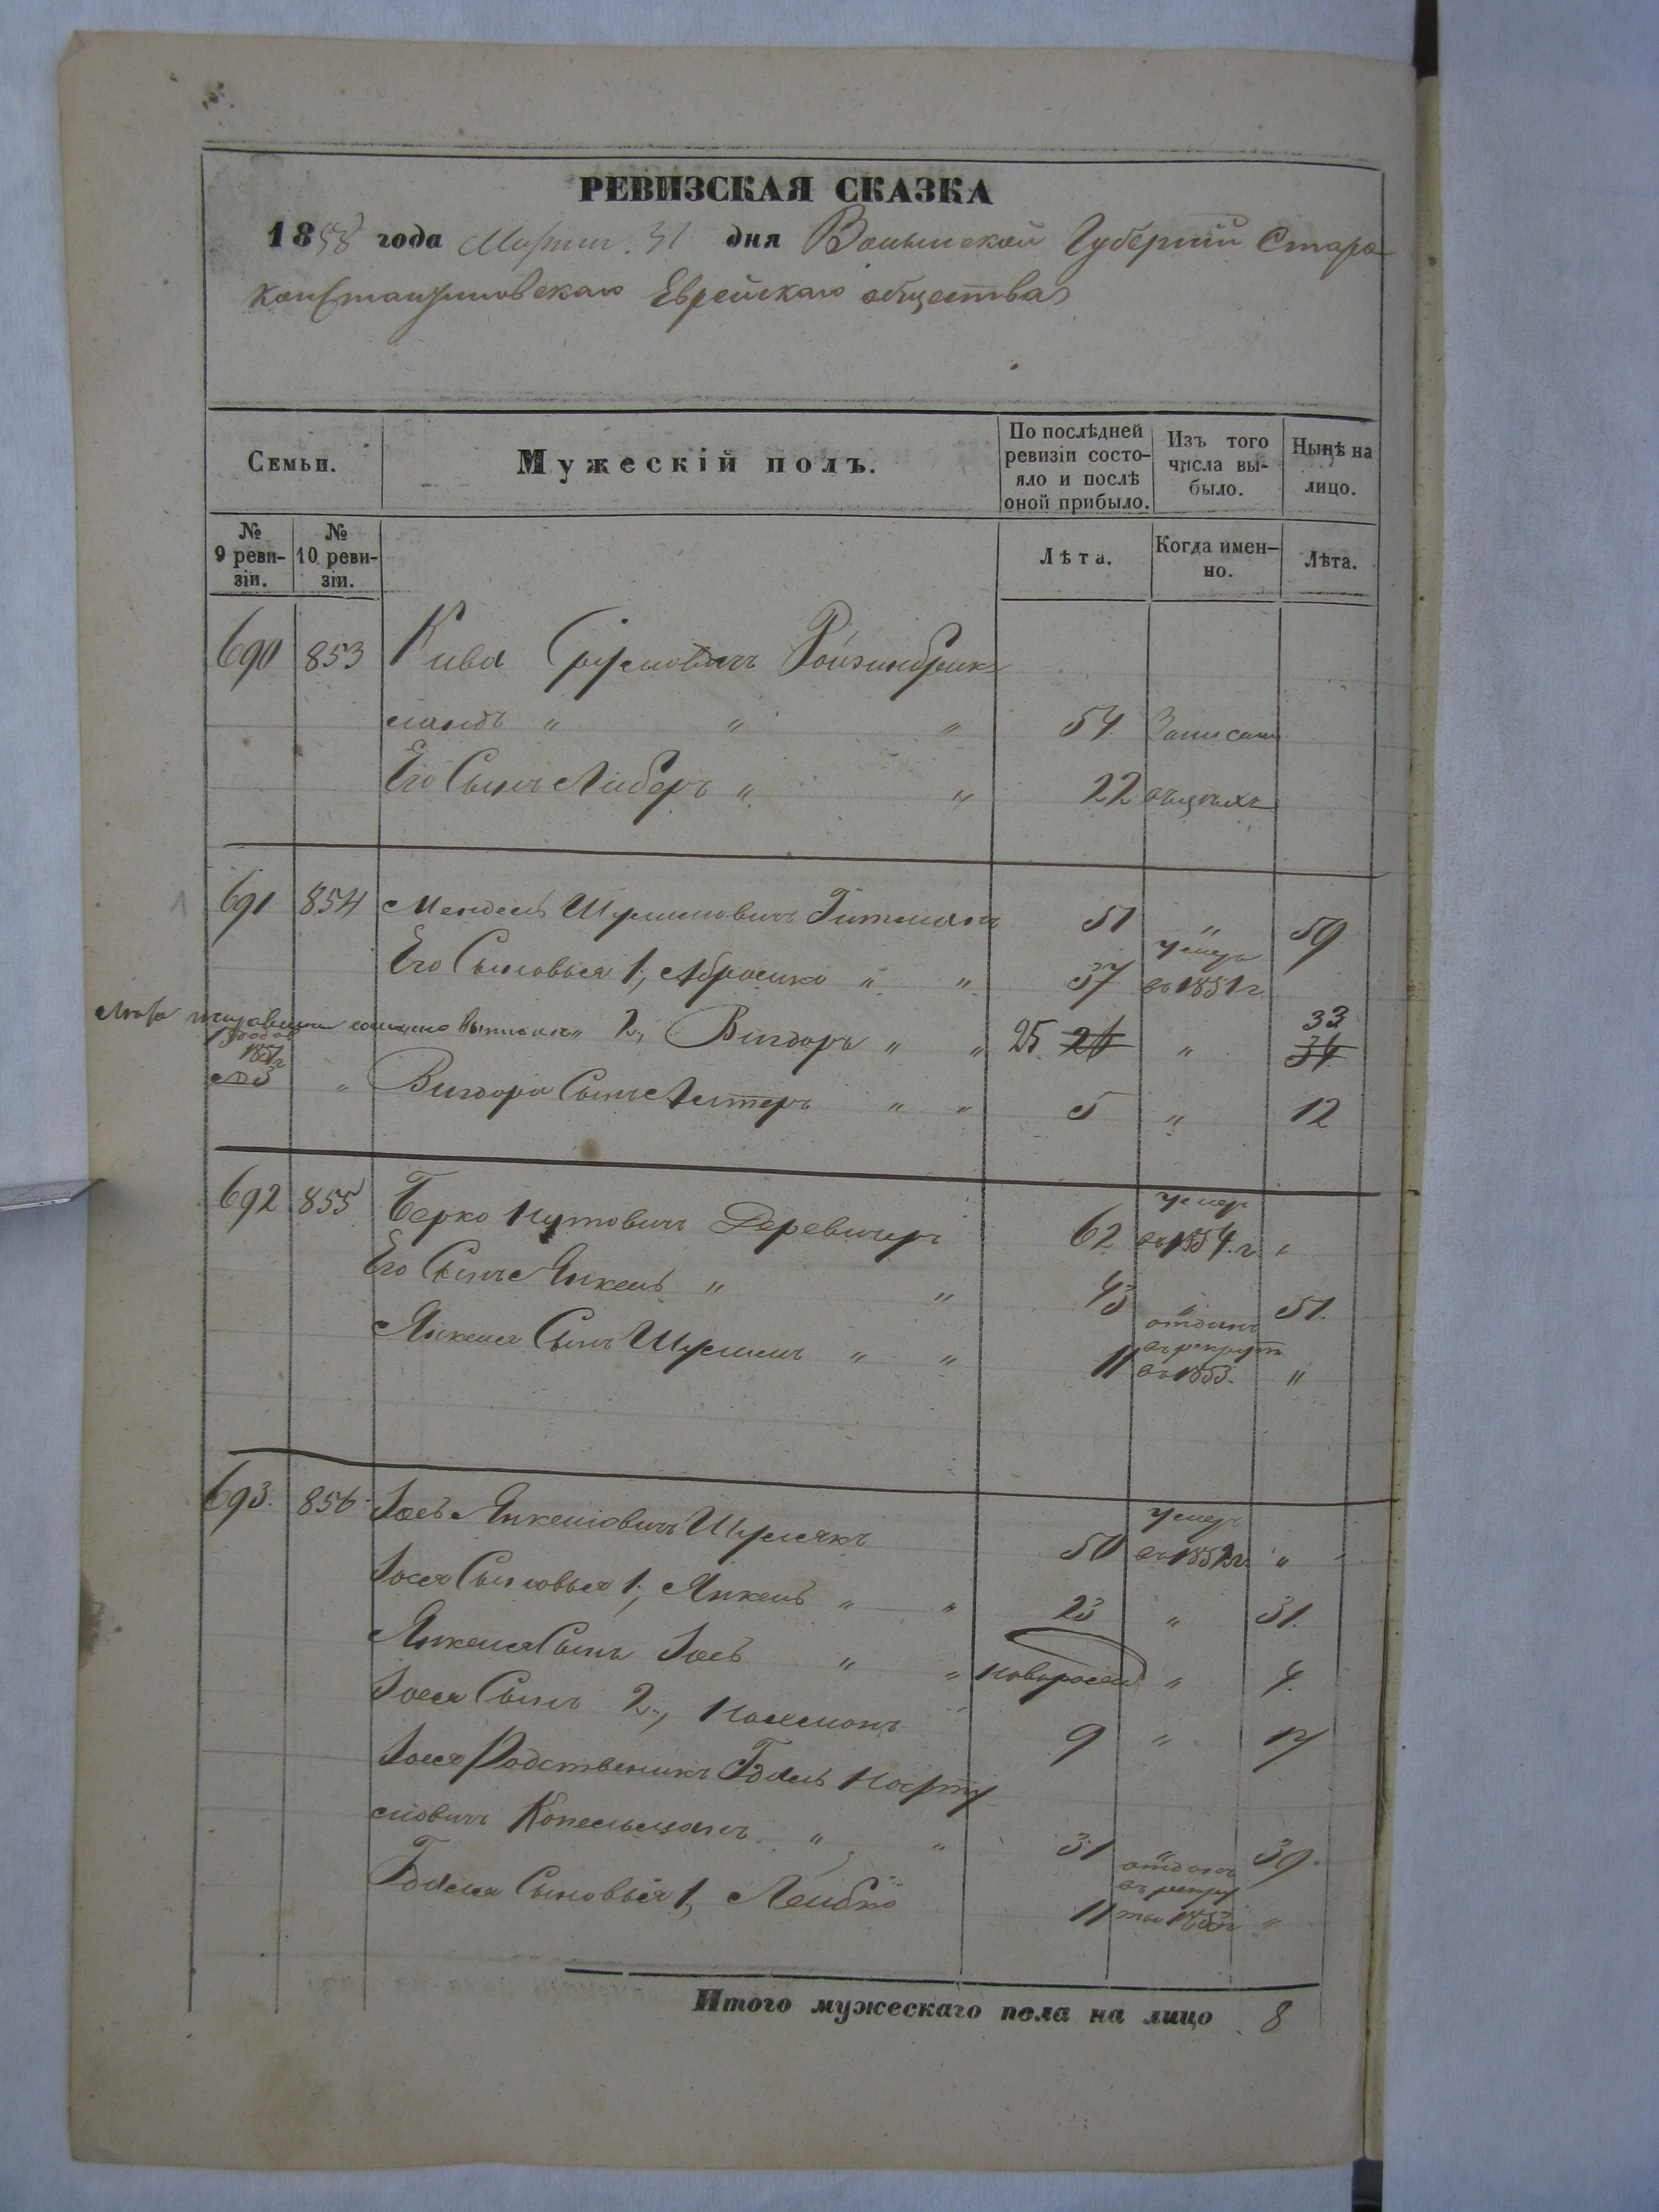 РЕВИЗСКАЯ СКАЗКА
1858 года Марта 31 дня Волынской Губерніи Старо-
константиновскаго Еврейскаго общества
Семьи.
Мужескій полъ.
По послѣдней ревизіи состо-
яло и послѣ
оной прибыло.
Изъ того
числа вы-
было.
Нынѣ на
лицо.
№
9 реви-
зіи.
№
10 реви-
зіи.
Лѣта.
Когда имен-
но.
Лѣта.
690 853 Кива Сруловичъ
" " " 54 Записанъ
Его Сынъ Либеръ " " 22
691 854 Мендель Шулимовичъ Гитманъ 51 " 59
Его Сыновья 1, Абрамко " " 37 умеръ въ 1851 г
2, Вигдоръ " " 25 26 " 33 34
1851 г
№3
" Вигдора Сынъ Лейзеръ " " 5 " 12
692 855 Берко Нутовичъ Деревичеръ 62 умеръ въ 1854. г. "
Его Сынъ Янкель " " 43 " 51.
Янкеля Сынъ Шулимъ " " 11 отданъ въ рекруты въ 1853. "
693. 856 Іось Янкеліовичъ Шумлякъ 50 умеръ въ 1852 г. "
Іося Сыновья 1, Янкель " " 23 " 31.
Янкеля Сынъ Іось " " новорожд. " 4.
Іося Сынъ 2, Нахманъ 9 " 17
Іося Родственикъ Годель
Копельманъ " " 31 " 39.
Годеля Сыновья 1, Лейбко 11 отданъ въ рекруты 1853 г "
Итого мужескаго пола на лицо 8